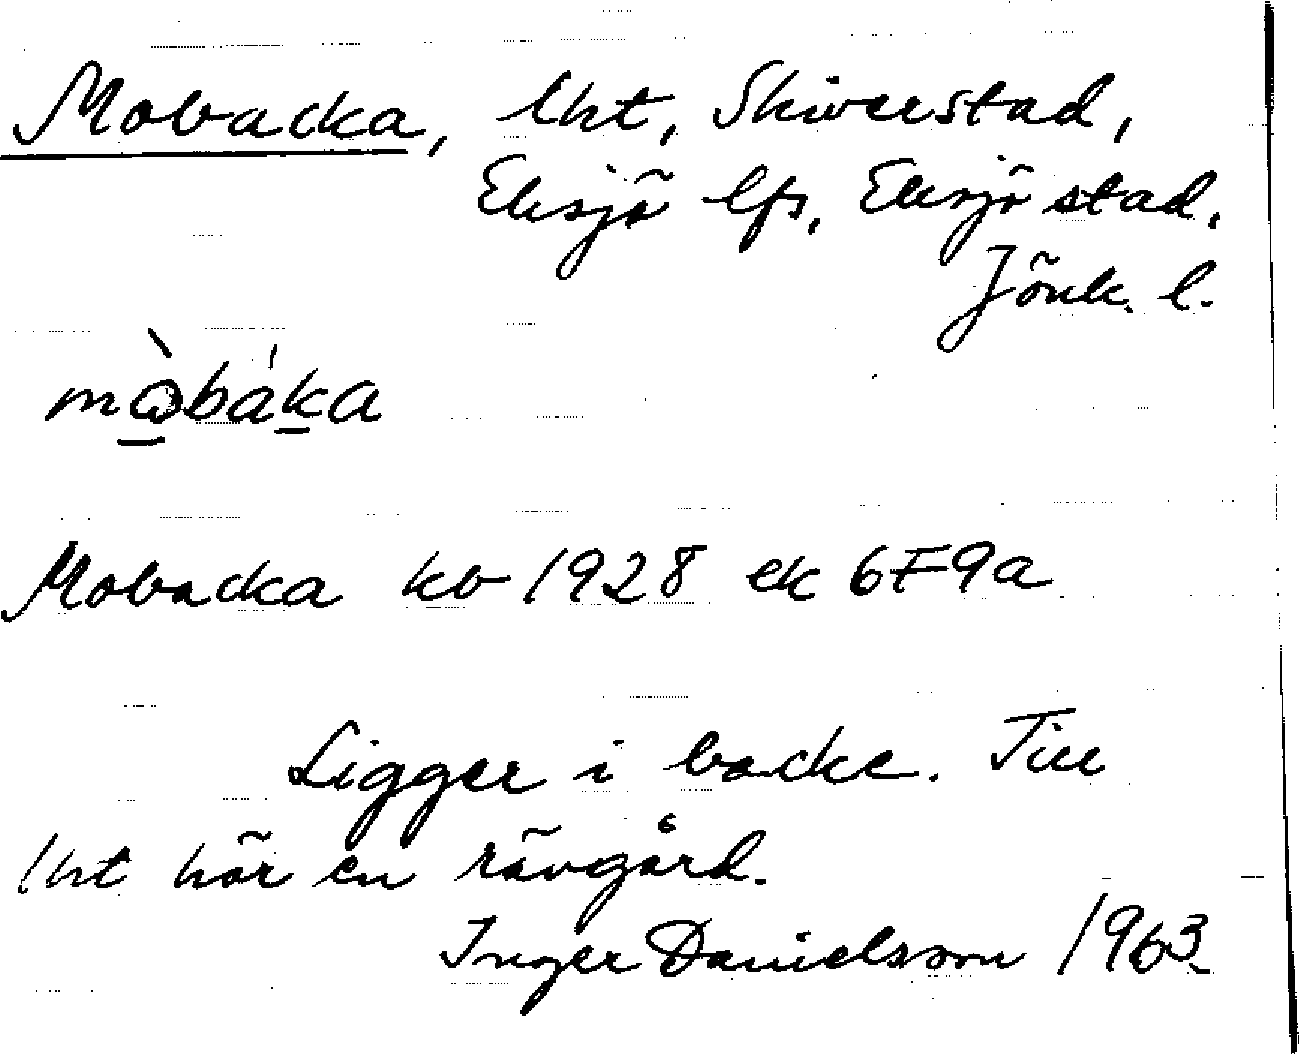 Mobacka, lht, Skiverstad,
Eksjö lfs, Eksjö stad,
Jönk. l.
mò̲bák̲a
Mobacka kb 1928 ek 6F9a
Ligger i backe. Till
lht hör en rävgård.
Inger Danielsson 1963